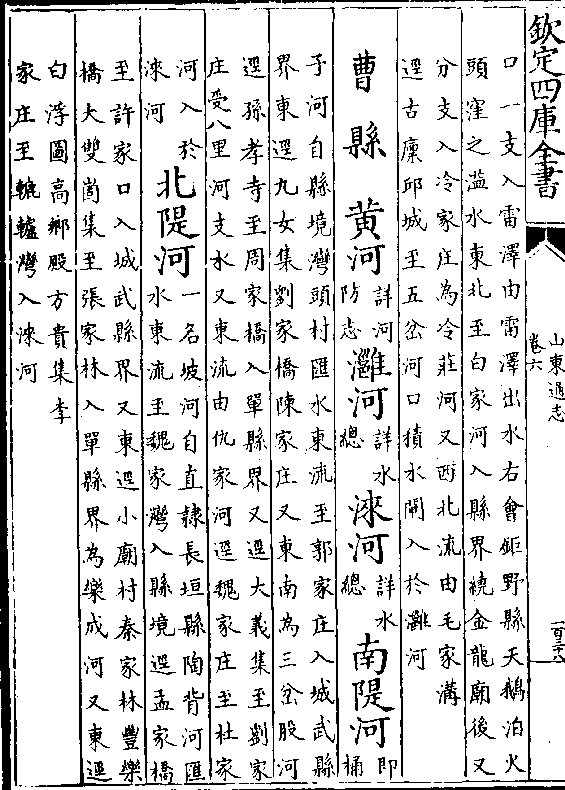 欽定四庫全書
山東通志
卷六
一百三十八
口一支入雷澤由雷澤出水右會鉅野縣天鵝泊火
頭窪之溢水東北至白家河入縣界繞金龍廟後又
分支入冷家庄為冷莊河又西北流由毛家溝
逕古廩邱城至五岔河口積水閘入於灉河
曹縣 黄河 詳河防志 灉河 詳水總 淶河 詳水總 南隄河 即桶
子河自縣境灣頭村匯水東流至郭家庄入城武縣
界東逕九女集劉家橋陳家庄又東南為三岔股河
逕孫孝寺至周家橋入單縣界又逕大義集至劉家
庄受八里河支水又東流由仇家河逕魏家庄至杜家
河入於淶河 北隄河 一名坡河自直隷長垣縣陶背河匯水東流至魏家灣入縣境逕孟家橋
至許家口入城武縣界又東逕小廟村秦家林豐樂
橋大雙崗集至張家林入單縣界為樂成河又東逕
白浮圖高鄉殷方貴集李
家庄至轆轤灣入淶河